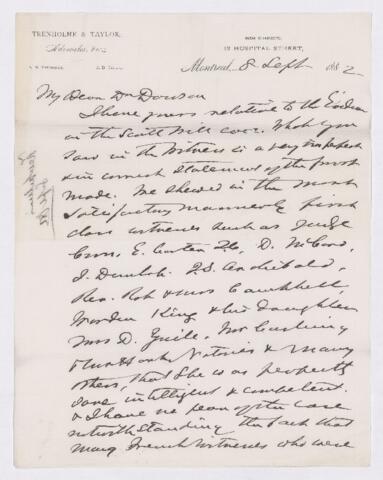 TRENHOLME & TAYLOR,
Advocates, &c.
12 HOSPITAL STREET,
Montreal, 8 Sept 1882
My Dear Dr Dawson
I have yours relative to the Evidence
in the Scott Will case. What you
saw in the Witness is a very imperfect
& incorrect statement of the proof
made. We shewed in the most
satisfactory manner by first
class witnesses such as Judge
Cross, E. Carter Qc, D. McCord,
J. Dunlop, J.S. Archibald,
Rev. Rob & Mrs Campbell,
Warden King & his daughter
Mrs D. Yuile, Mr Cushing
& Hunter Notaries & many
others, that she is as perfectly
sane intelligent & competent.
& I have no fear of the case
notwithstanding the fact that
many French witnesses who were